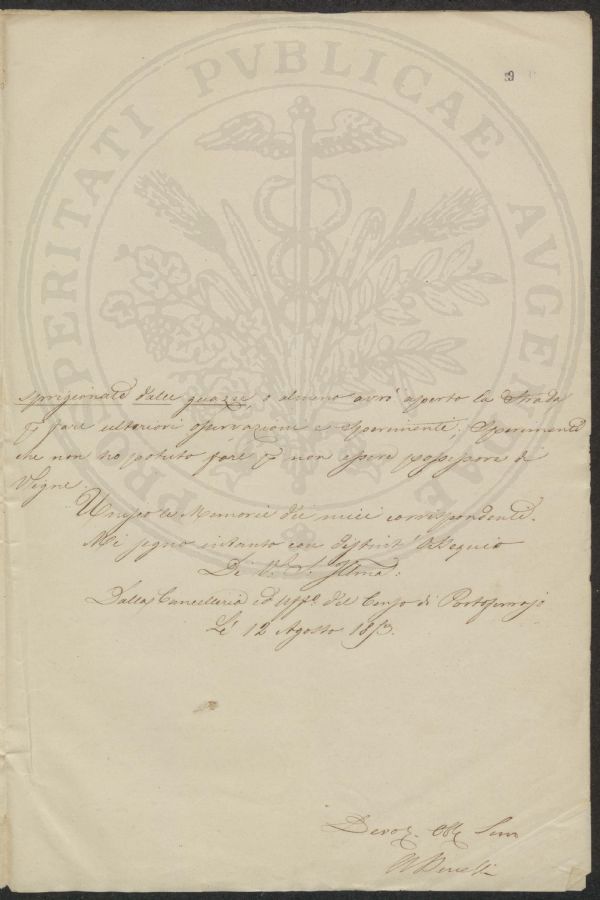 PROSPERITATI PVBLICAE AVGENDAE
9
sprigionate dalle guazze, o almeno avrò aperto la strada
p fare ulteriori osservazioni e sperimenti; sperimenti
che non ho potuto fare p non essere possessore di
Vigne.
Unisco le Memorie dei miei corrispondenti.
Mi segno intanto con distint° ossequio
Di V. S. Illma:
Dalla Cancelleria ed Uff° del Censo di Portoferrajo
Li 12 Agosto 1853.
Devot. Obb Serv